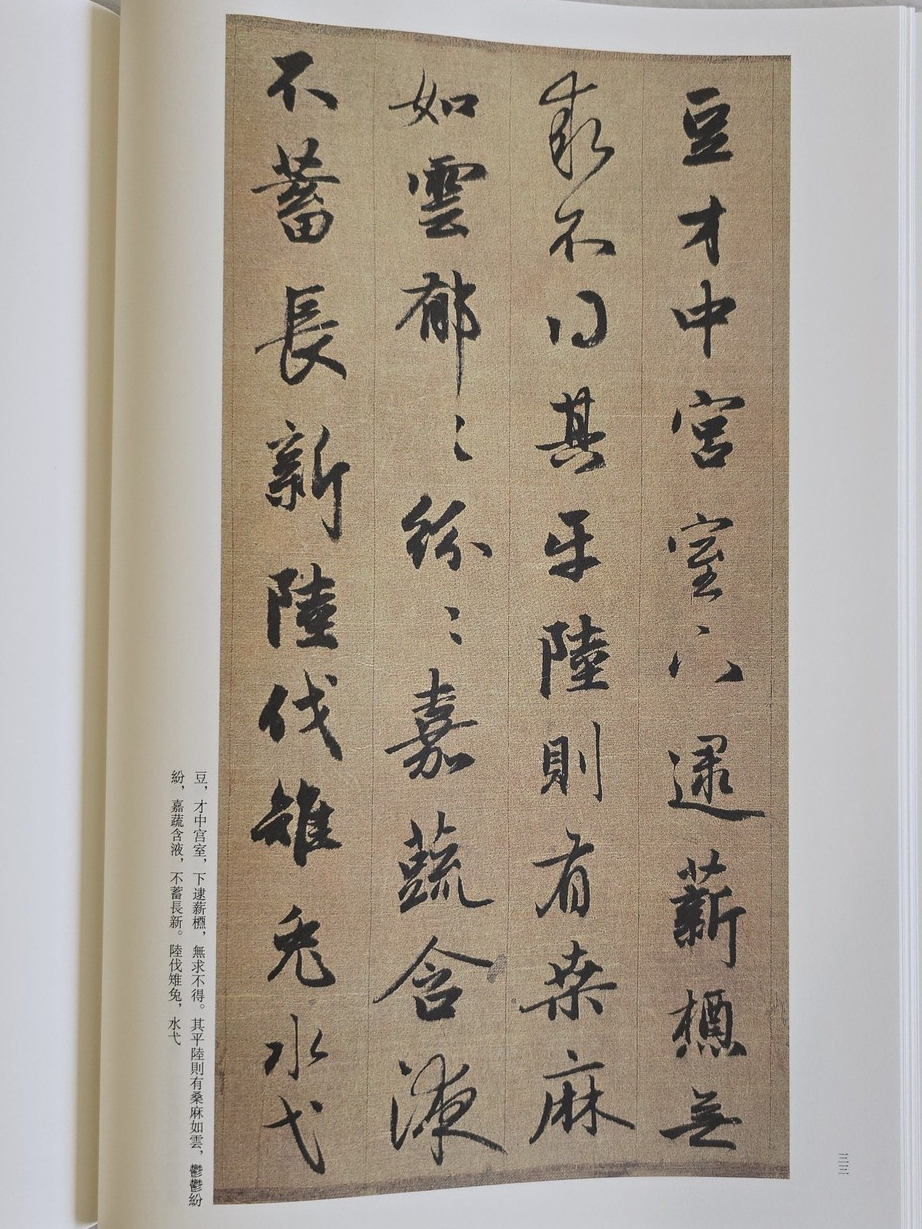 豆才中宮室下逮薪槱無
求不得其平陸則有桒麻
如雲郁〻紛〻嘉蔬含液
不蓄長新陸伐雉兔水弋
豆，才中宮室，下逮薪槱，無求不得。其平陸則有桑麻如雲，鬱鬱紛
紛，嘉蔬含液，不蓄長新。陸伐雉兔，水弋
三三